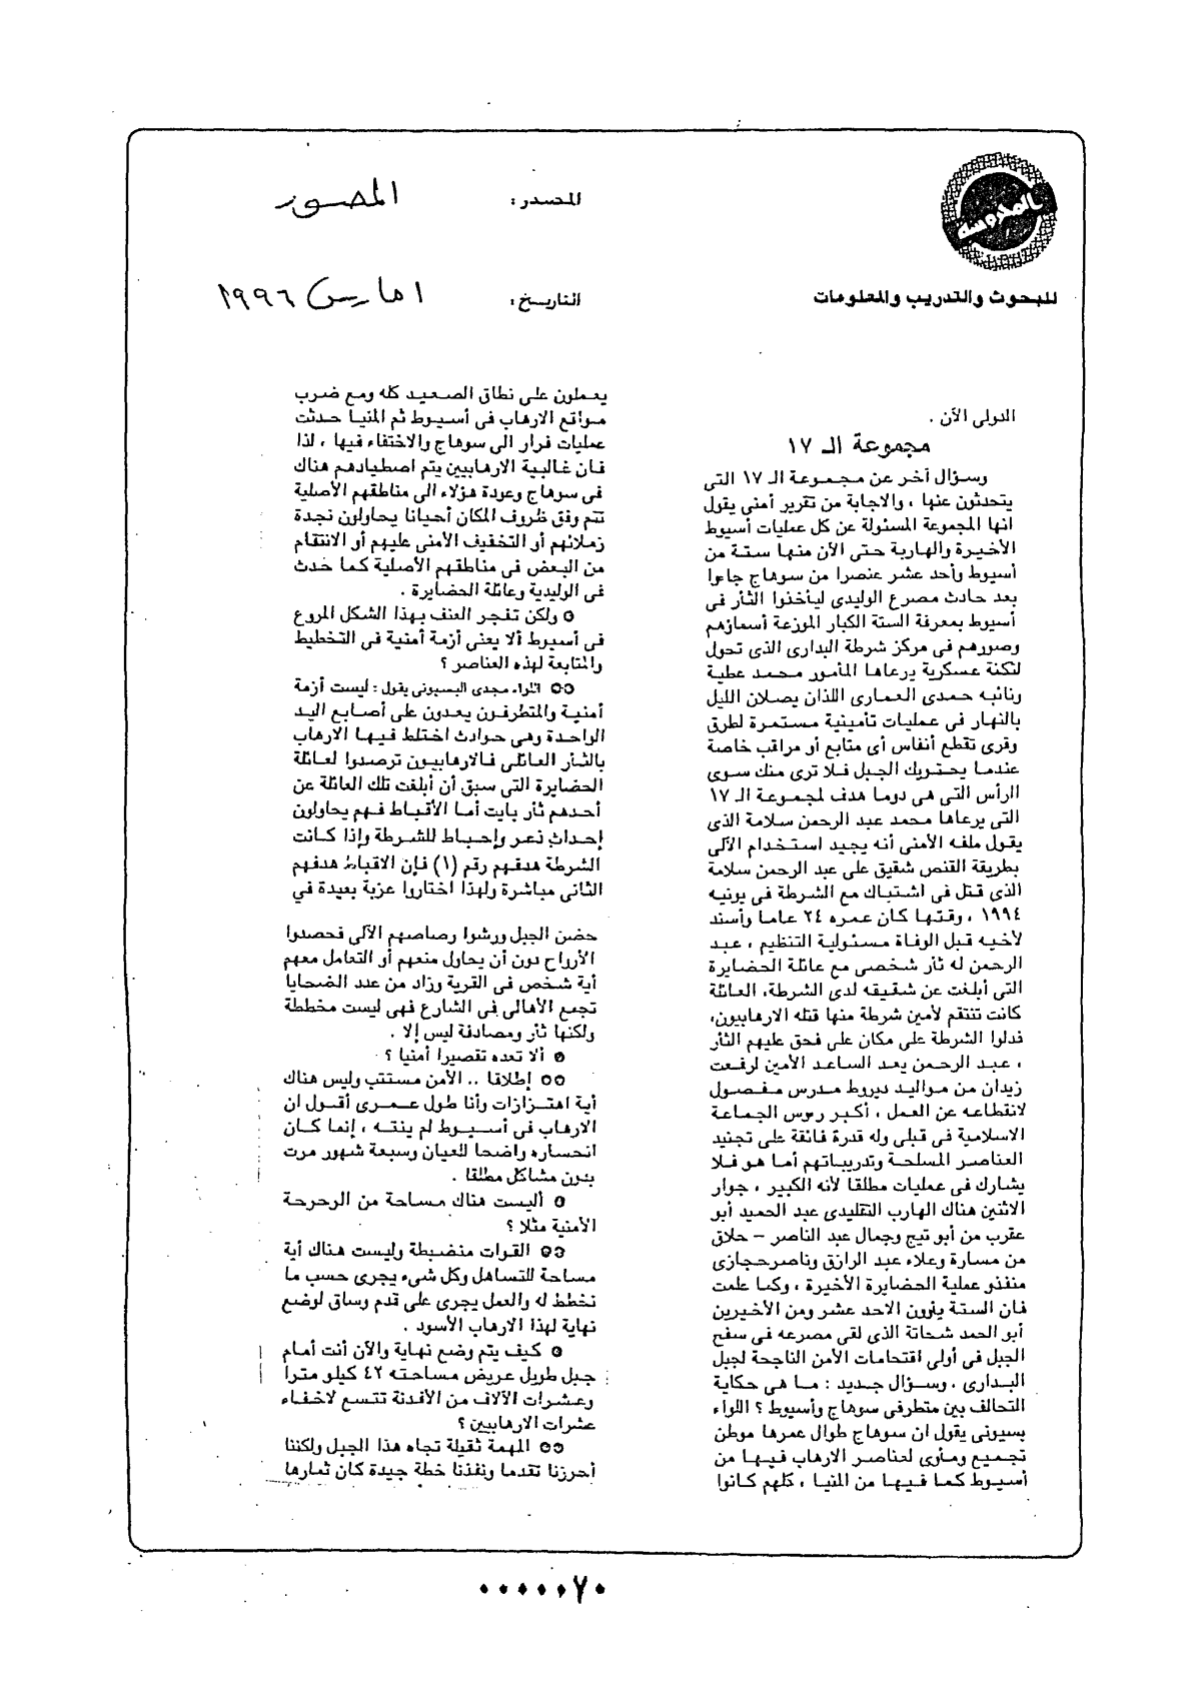 المحروسة
للبحوث والتدريب والمعلومات
المصدر : المصور
التاريخ : ١ مارس ١٩٩٦
الدولى الآن .
مجموعة الـ ١٧
وسؤال آخر عن مجموعة الـ ١٧ التى
يتحدثون عنها ، والاجابة من تقرير أمنى يقول
انها المجموعة المسئولة عن كل عمليات أسيوط
الأخيرة والهاربة حتى الآن منها ستة من
أسيوط وأحد عشر عنصرا من سوهاج جاءوا
بعد حادث مصرع الوليدى ليأخذوا الثأر فى
أسيوط بمعرفة الستة الكبار الموزعة أسماؤهم
وصورهم فى مركز شرطة البدارى الذى تحول
لثكنة عسكرية يرعاها المأمور محمد عطية
ونائبه حمدى العمارى اللذان يصلان الليل
بالنهار فى عمليات تأمينية مستمرة لطرق
وقرى تقطع أنفاس أى متابع أو مراقب خاصة
عندما يحتويك الجبل فلا ترى منك سوى
الرأس التى هى دوما هدف لمجموعة الـ ١٧
التى يرعاها محمد عبد الرحمن سلامة الذى
يقول ملفه الأمنى أنه يجيد استخدام الآلى
بطريقة القنص شقيق على عبد الرحمن سلامة
الذى قتل فى اشتباك مع الشرطة فى يونيه
١٩٩٤ ، وقتها كان عمره ٢٤ عاما وأسند
لأخيه قبل الوفاة مسئولية التنظيم ، عبد
الرحمن له ثأر شخصى مع عائلة الحضايرة
التى أبلغت عن شقيقه لدى الشرطة، العائلة
كانت تنتقم لأمين شرطة منها قتله الارهابيون،
فدلوا الشرطة على مكان على فحق عليهم الثأر
، عبد الرحمن يعد الساعد الأمين لرفعت
زيدان من مواليد ديروط مدرس مفصول
لانقطاعه عن العمل ، أكبر رءوس الجماعة
الاسلامية فى قبلى وله قدرة فائقة على تجنيد
العناصر المسلحة وتدريباتهم أما هو فلا
يشارك فى عمليات مطلقا لأنه الكبير ، جوار
الاثنين هناك الهارب التقليدى عبد الحميد أبو
عقرب من أبو تيج وجمال عبد الناصر – حلاق
من مسارة وعلاء عبد الرازق وناصرحجازى
منفذو عملية الحضايرة الأخيرة ، وكما علمت
فان الستة يأوون الاحد عشر ومن الأخيرين
أبو الحمد شحاتة الذى لقى مصرعه فى سفح
الجبل فى أولى اقتحامات الأمن الناجحة لجبل
البدارى . وسؤال جديد : ما هى حكاية
التحالف بين متطرفى سوهاج وأسيوط ؟ اللواء
بسيونى يقول ان سوهاج طوال عمرها موطن
تجميع ومأوى لعناصر الارهاب فيها من
أسيوط كما فيها من المنيا ، كلهم كانوا
يعملون على نطاق الصعيد كله ومع ضرب
مواقع الارهاب فى أسيوط ثم المنيا حدثت
عمليات فرار الى سوهاج والاختفاء فيها ، لذا
فان غالبية الارهابيين يتم اصطيادهم هناك
فى سوهاج وعودة هؤلاء الى مناطقهم الأصلية
تتم وفق ظروف المكان أحيانا يحاولون نجدة
زملائهم أو التخفيف الأمنى عليهم أو الانتقام
من البعض فى مناطقهم الأصلية كما حدث
فى الوليدية وعائلة الحضايرة .
ولكن تفجر العنف بهذا الشكل المروع
فى أسيوط ألا يعنى أزمة أمنية فى التخطيط
والمتابعة لهذه العناصر ؟
اللواء مجدى البسيونى يقول : ليست أزمة
أمنية والمتطرفون يعدون على أصابع اليد
الواحدة وهى حوادث اختلط فيها الارهاب
بالثأر العائلى فالارهابيون ترصدوا لعائلة
الحضايرة التى سبق أن أبلغت تلك العائلة عن
أحدهم ثأر بايت أما الأقباط فهم يحاولون
إحداث ذعر وإحباط للشرطة وإذا كانت
الشرطة هدفهم رقم (١) فإن الاقباط هدفهم
الثانى مباشرة ولهذا اختاروا عزبة بعيدة في
حضن الجبل ورشوا رصاصهم الآلى فحصدوا
الأرواح دون أن يحاول منعهم أو التعامل معهم
أية شخص فى القرية وزاد من عدد الضحايا
تجمع الأهالى فى الشارع فهى ليست مخططة
ولكنها ثأر ومصادفة ليس إلا .
ألا تعده تقصيرا أمنيا ؟
إطلاقا .. الأمن مستتب وليس هناك
أية اهتزازات وأنا طول عمرى أقول ان
الارهاب فى أسيوط لم ينته ، إنما كان
انحساره واضحا للعيان وسبعة شهور مرت
بدون مشاكل مطلقا .
أليست هناك مساحة من الرحرحة
الأمنية مثلا ؟
القوات منضبطة وليست هناك أية
مساحة للتساهل وكل شىء يجرى حسب ما
نخطط له والعمل يجرى على قدم وساق لوضع
نهاية لهذا الارهاب الأسود .
كيف يتم وضع نهاية والآن أنت أمام
جبل طويل عريض مساحته ٤٢ كيلو مترا
وعشرات الآلاف من الأفدنة تتسع لاخفاء
عشرات الارهابيين ؟
المهمة ثقيلة تجاه هذا الجبل ولكننا
أحرزنا تقدما ونفذنا خطة جيدة كان ثمارها
٠٠٠٠٠٧٠